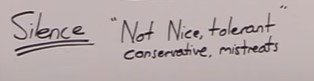 Silence "Not Nice, tolerant"
conservative, mistreats